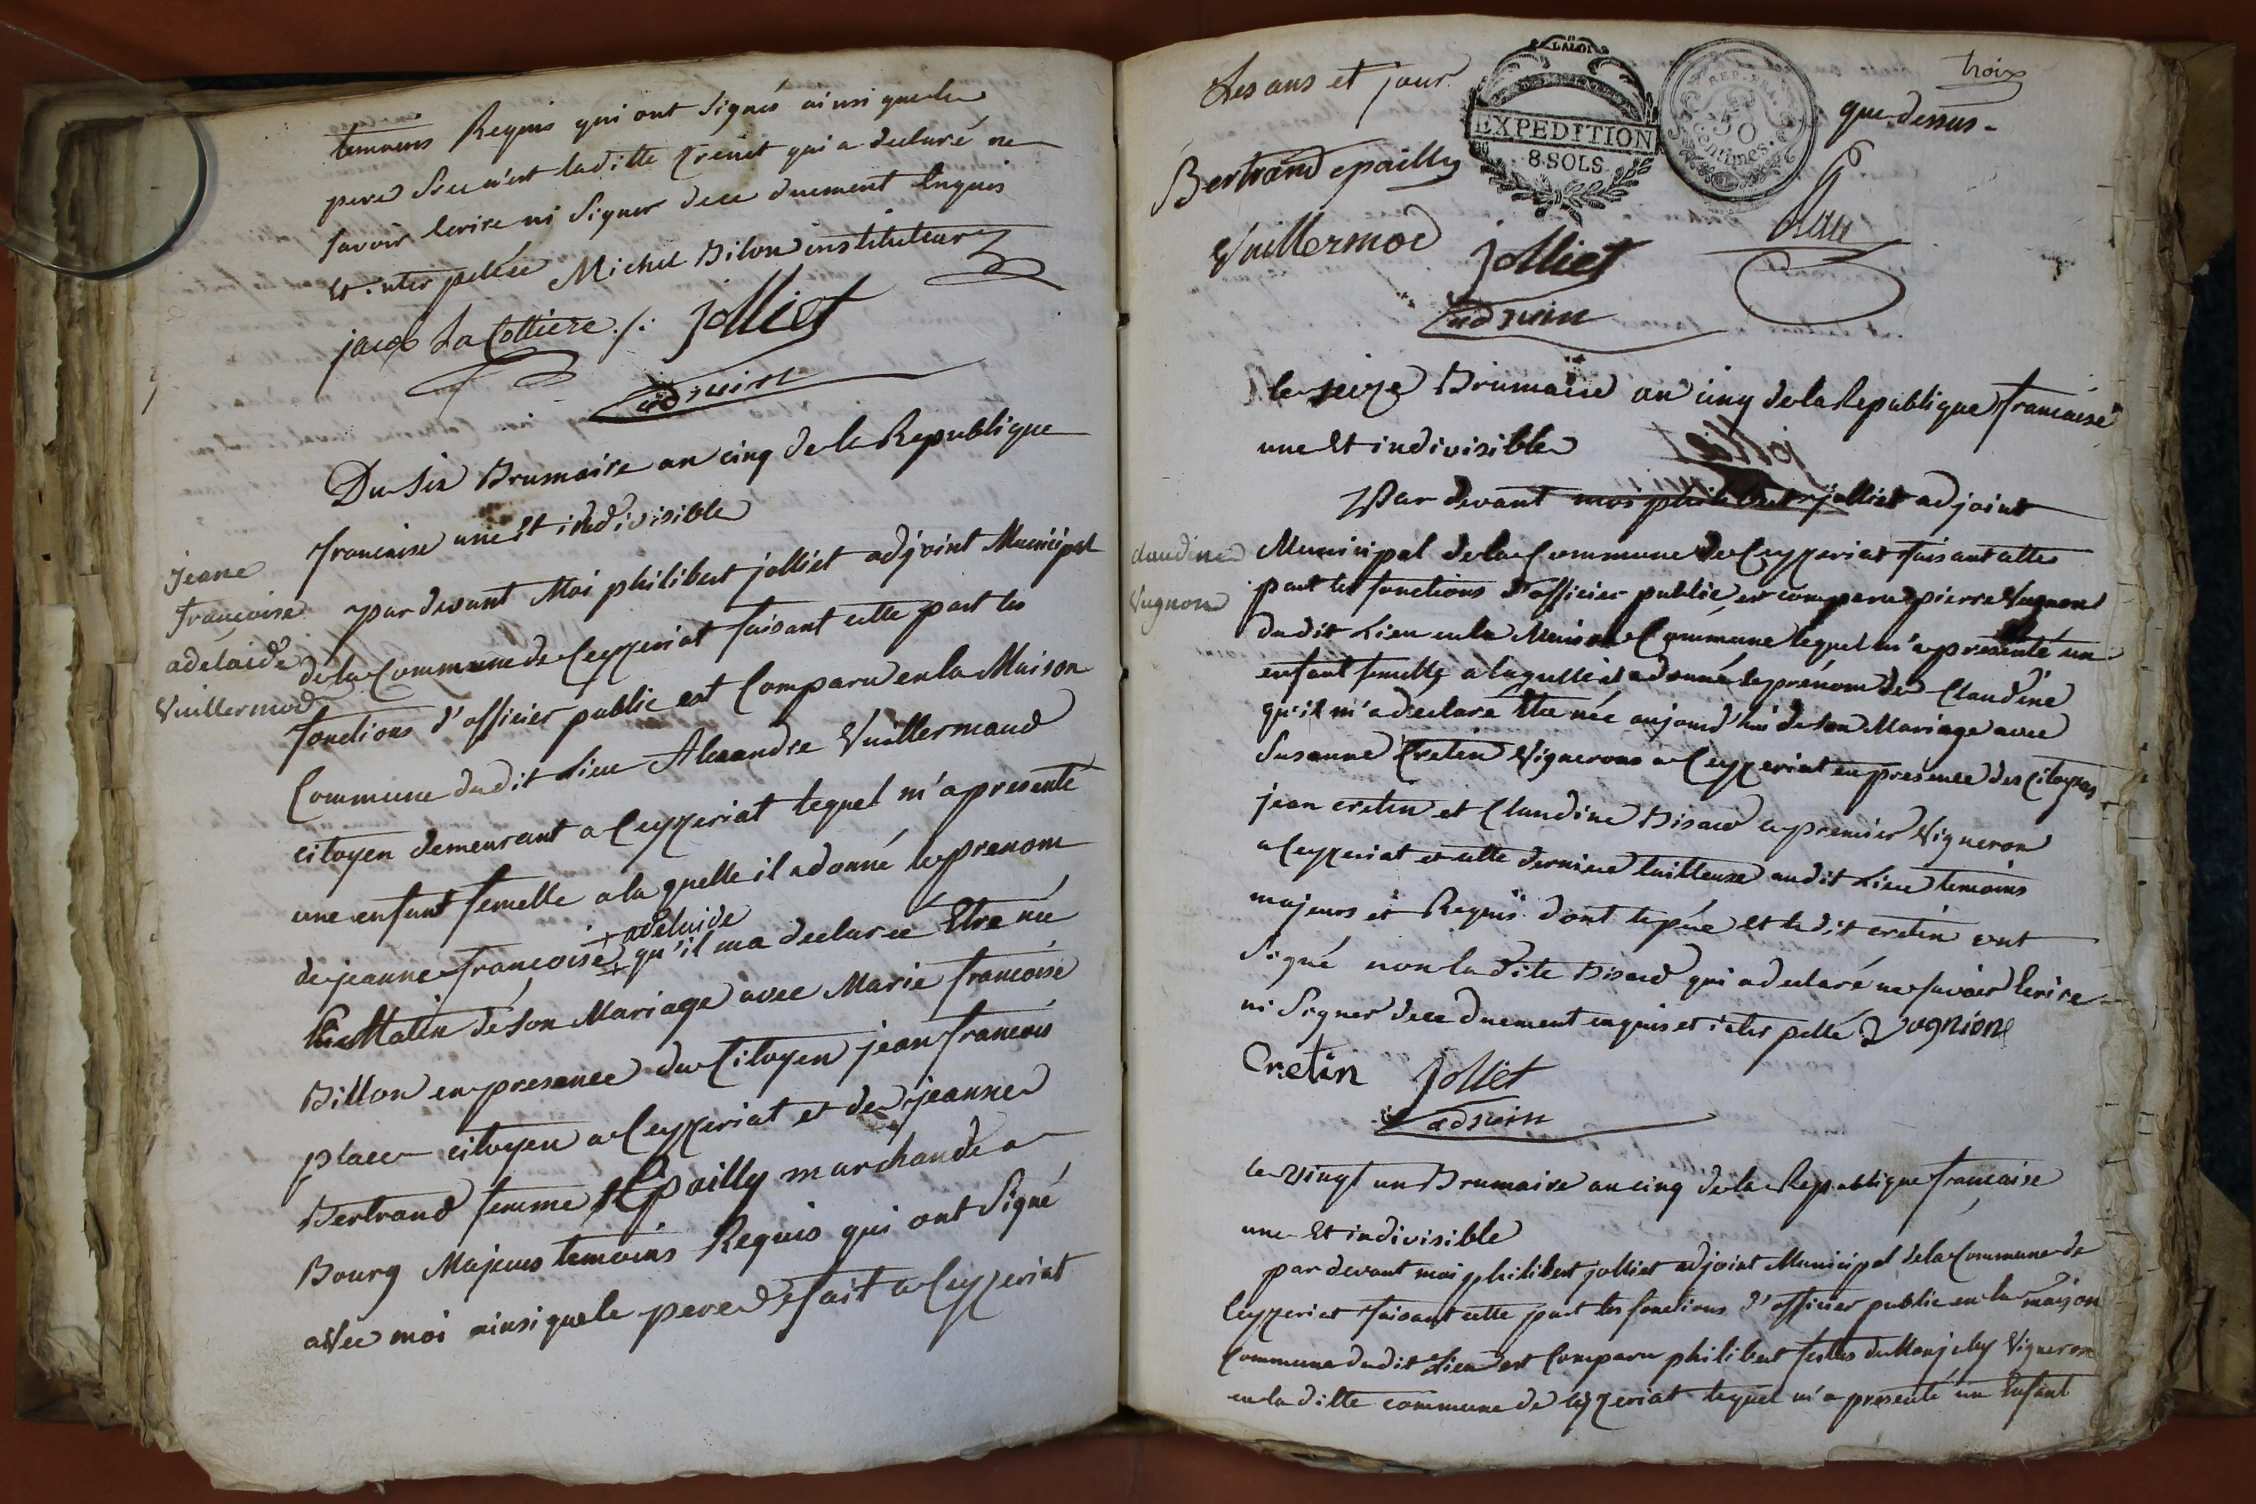 temoins Requis qui ont Signés ainsi que le
pere Si ce n'est laditte qui a declaré ne
savoir lecrire ni Signer de ce duement Enquis
Et interpellée Michel Bilon instituteur
jacob La Cottiere jolliet
adjoin
Du Six Brumaire an cinq de la Republique
francaise une Et indivisible
jeane
françoise
adelaide
Vuillermod
par devant Moi philibert jolliet adjoint Municipal
de la Commune de Ceyzeriat faisant cette part les
fonctions d'officier public est Comparu en la Maison
Commune dudit Lieu Alexandre Vuillermaud
citoyen demeurant a Ceyzeriat lequel m'a presenté
une enfant femelle a la quelle il a donné le prenom
+ adelaide
de jeanne francoise + qu'il ma declaree Etre née
Ce Matin de son Mariage avec Marie francoise
Billon en presence du Citoyen jean francois
place citoyen a Ceyzeriat et de jeanne
Bertrand femme Epailly marchande a
Bourg Majeurs temoins Requis qui ont Signé
avec moi ainsi que le pere fait a Ceyzeriat
troix
Les ans et jour que dessus
LA LOI
EXPEDITION
8 SOLS
REP. FRA.
50
centimes
Bertrand epailly
Vuillermod jolliet
adjoin
le seize Brumaire an cinq de la Republique francaise
une Et indivisible
Par devant moi philibert jolliet adjoint
claudine
Vugnon
Municipal de la Commune de Ceyzeriat faisant cette
part les fonctions d'officier public est comparu pierre Vugnon
dudit Lieu en la Maison Commune lequel m'a presenté un
enfant femelle a laquelle il a donné le prénom de Claudine
qu'il m'a declaré Etre née aujourd'hui de son Mariage avec
Susanne Cretin Vignerons a Ceyzeriat en presence des Citoyens
jean cretin et Claudine Bisard le premier Vigneron
a Ceyzeriat et cette derniere tailleuse audit Lieu temoins
majeurs et Requis dont le père et ledit cretin ont
Signé non la dite Bisard qui a declaré ne savoir Ecrire
ni Signer de ce duement enquis et interpellé Vognione
Cretin jolliet
adjoin
le vingt un Brumaire an cinq de la Republique francaise
une Et indivisible
par devant moi philibert jolliet adjoint Municipal de la Commune de
Ceyzeriat faisant cette part les fonctions d'officier public en la maison
Commune dudit Lieu est Comparu philibert Vigneron
en la ditte commune de Ceyzeriat lequel m'a presenté un Enfant